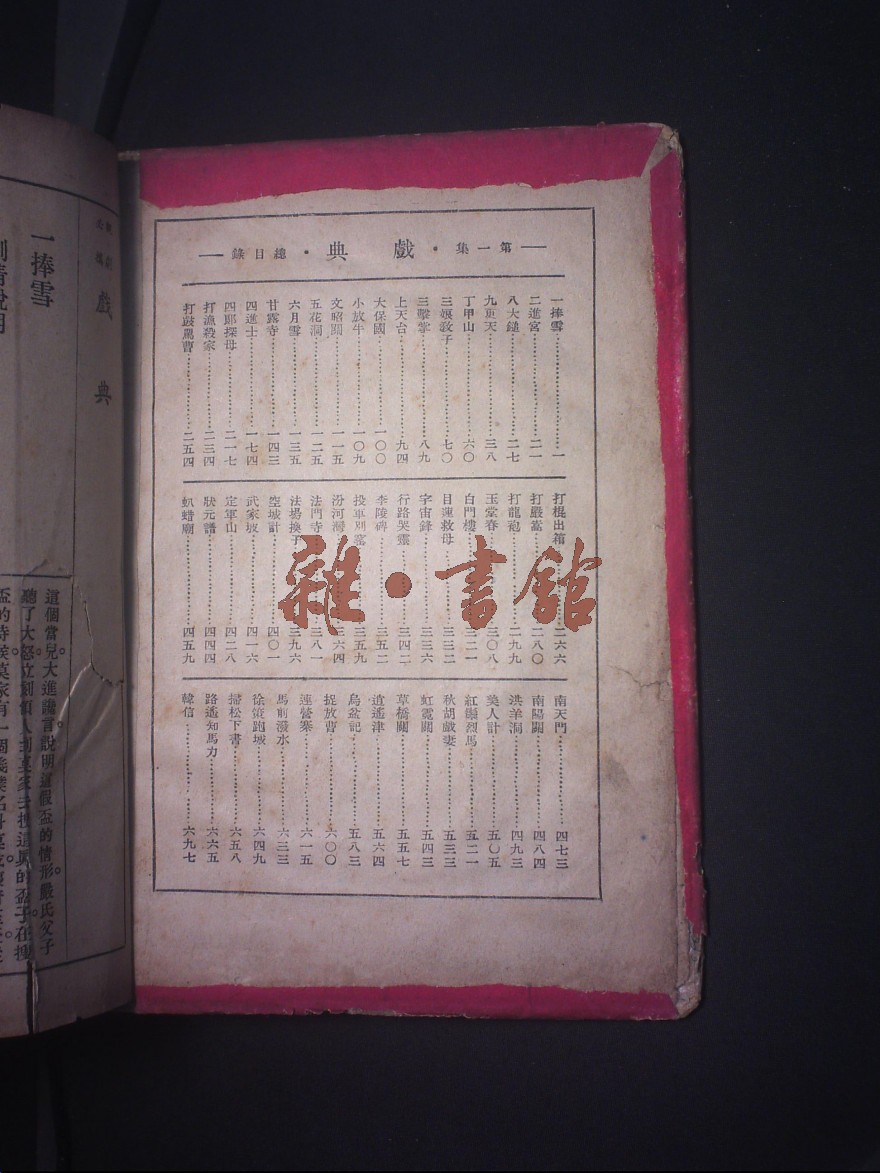 第一集・戲典・總目錄
一捧雪 一
二進宮 二一
八大鎚 二七
九更天 三八
丁甲山 六〇
三娘教子 七〇
三擊掌 八九
上天台 九四
大保國 一〇〇
小放牛 一〇九
文昭關 一一五
五花洞 一二五
六月雪 一三五
甘露寺 一四三
四進士 一七四
四郎探母 二一七
打漁殺家 二三四
打鼓罵曹 二五四
打棍出箱 二六六
打嚴嵩 二八〇
打龍袍 二九九
玉堂春 三〇八
白門樓 三二一
目蓮救母 三三二
宇宙鋒 三三六
行路哭靈 三四二
李陵碑 三五二
投軍別窰 三五九
汾河灣 三六四
法門寺 三八一
法場換子 三九六
空城計 四〇一
武家坡 四一六
定軍山 四二八
狀元譜 四四四
虮蜡廟 四五九
南天門 四七三
南陽關 四八四
洪羊洞 四九三
美人計 五〇五
紅鬃烈馬 五二一
秋胡戲妻 五三三
虹霓關 五四三
草橋關 五五七
逍遙津 五六四
烏盆記 五八三
捉放曹 六〇〇
連營寨 六一五
馬前潑水 六三三
徐策跑城 六四九
掃松下書 六五八
路遙知馬力 六六五
韓信 六九七
雜・書館
戲典
一捧雪
劇情說明
這個當兒大進讒言說明這假盃的情形嚴氏父子